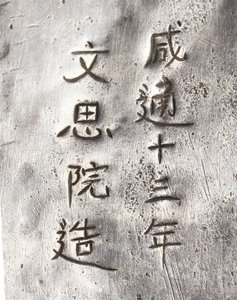 咸通十三年
文思院造